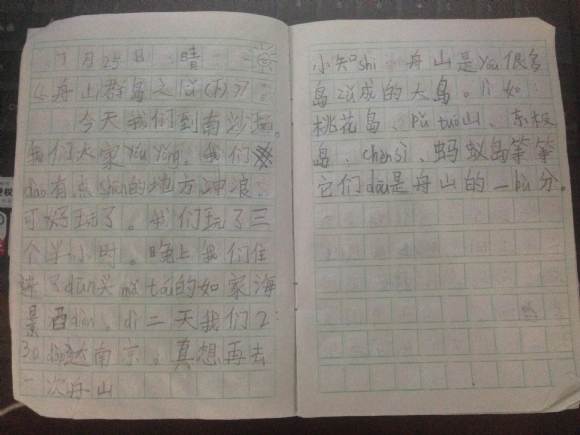 7月25日 晴
《舟山群岛之lǚ(下)》
今天我们到南沙
我们大家yóu yǒng。我们
dào有点shēn的地方冲浪、
可好玩了。我们玩了三
个半小时。晚上我们住
进 dūn头mǎ tóu的如家海
景酒diàn。dì二天我们2:
30 到达南京。真想再去
一次舟山
小知shi 舟山是yóu很多
岛zǔ成的大岛。lì如:
桃花岛、pǔ tuó山、东极
岛、chéng sì、蚂蚁岛等等
它们dōu是舟山的一bù分。